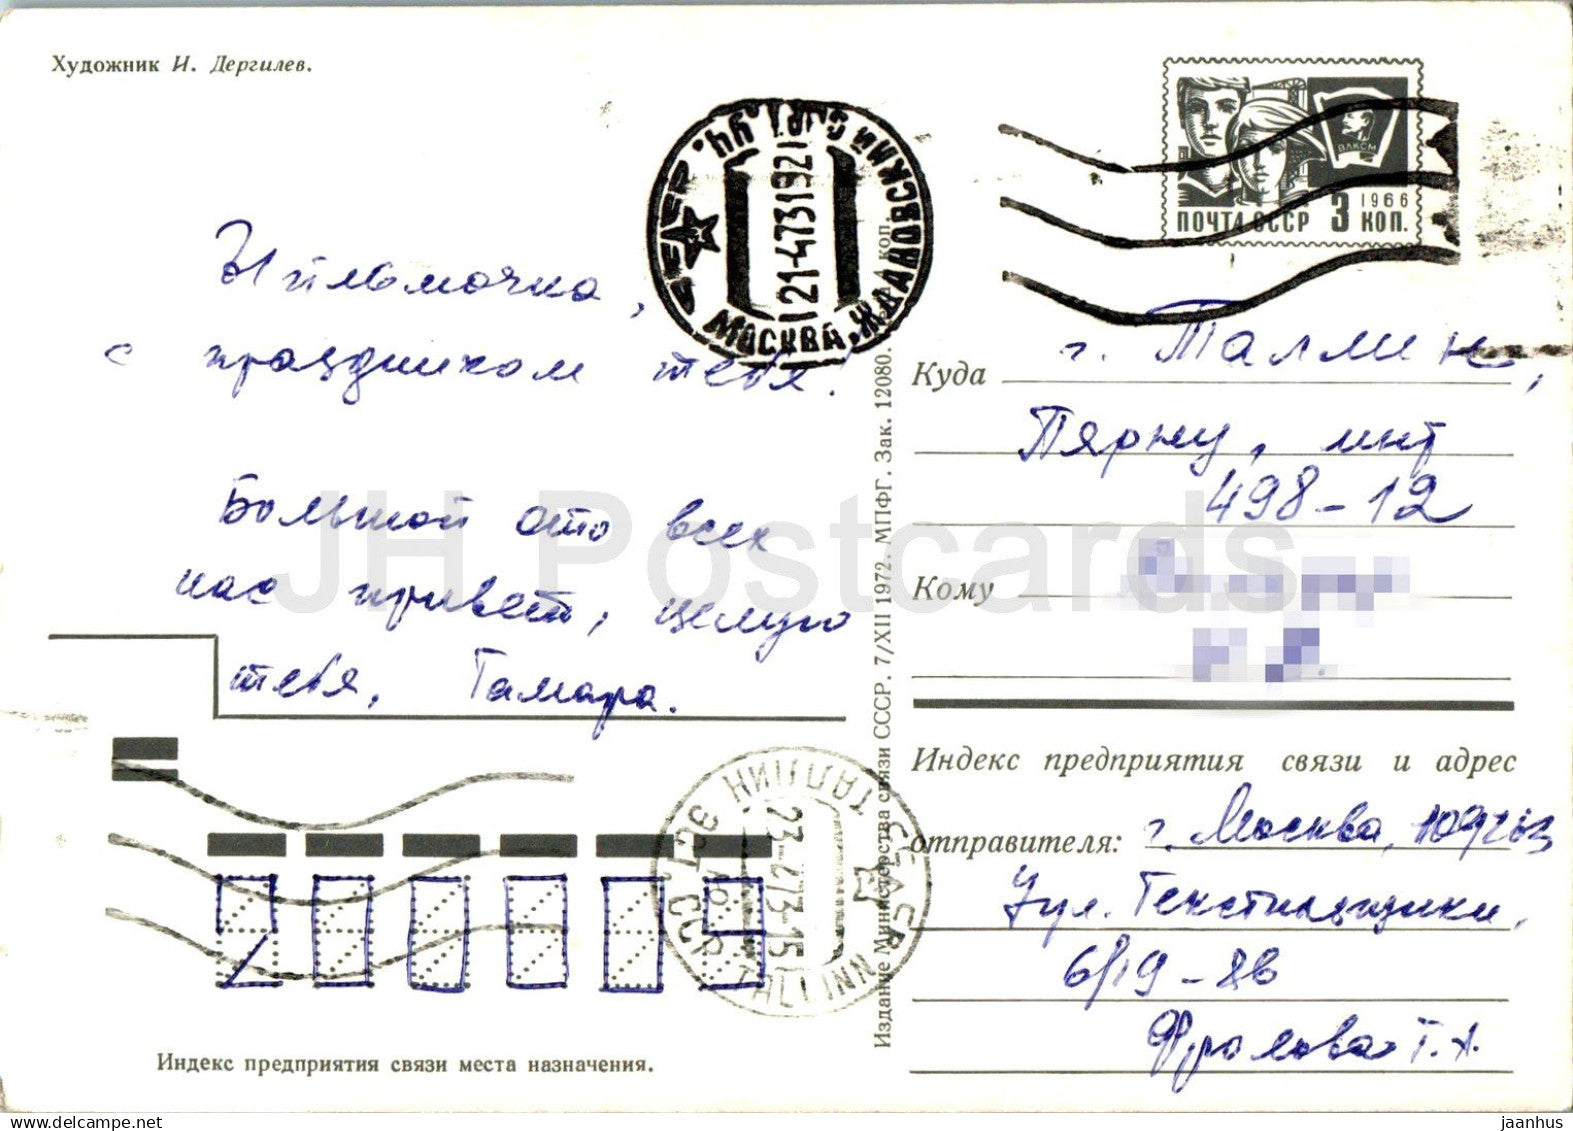 Художник И. Дергилев.
МОСКВА, ЖДАНОВСКИЙ
21-473192
ВЛКСМ
1966
ПОЧТА СССР 3 КОП.
Ыйльмочка,
с праздником тебя!
Большой ото всех
нас привет, целую
тебя, Тамара.
Куда г. Таллин,
Пярну, мнт
498-12
Кому
Индекс предприятия связи и адрес
отправителя: г. Москва, 109
Ул. Текстильщики,
6/19-86
Фролова Т. А.
200009
ТАЛЛИН ЭСТ
23-473-15
TALLINN
Индекс предприятия связи места назначения.
Издание Министерства связи СССР. 7/XII 1972. МПФГ. Зак. 12080.
коп.
JH Postcards
www.delcampe.net
jaanhus